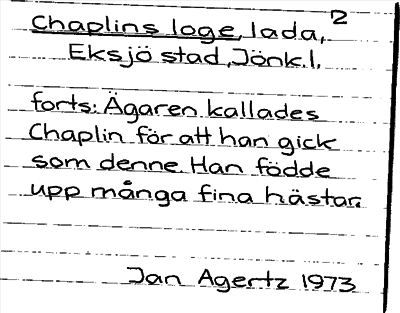 2
Chaplins loge, lada,
Eksjö stad, Jönk.l.
forts: Ägaren kallades
Chaplin för att han gick
som denne. Han födde
upp många fina hästar.
Jan Agertz 1973